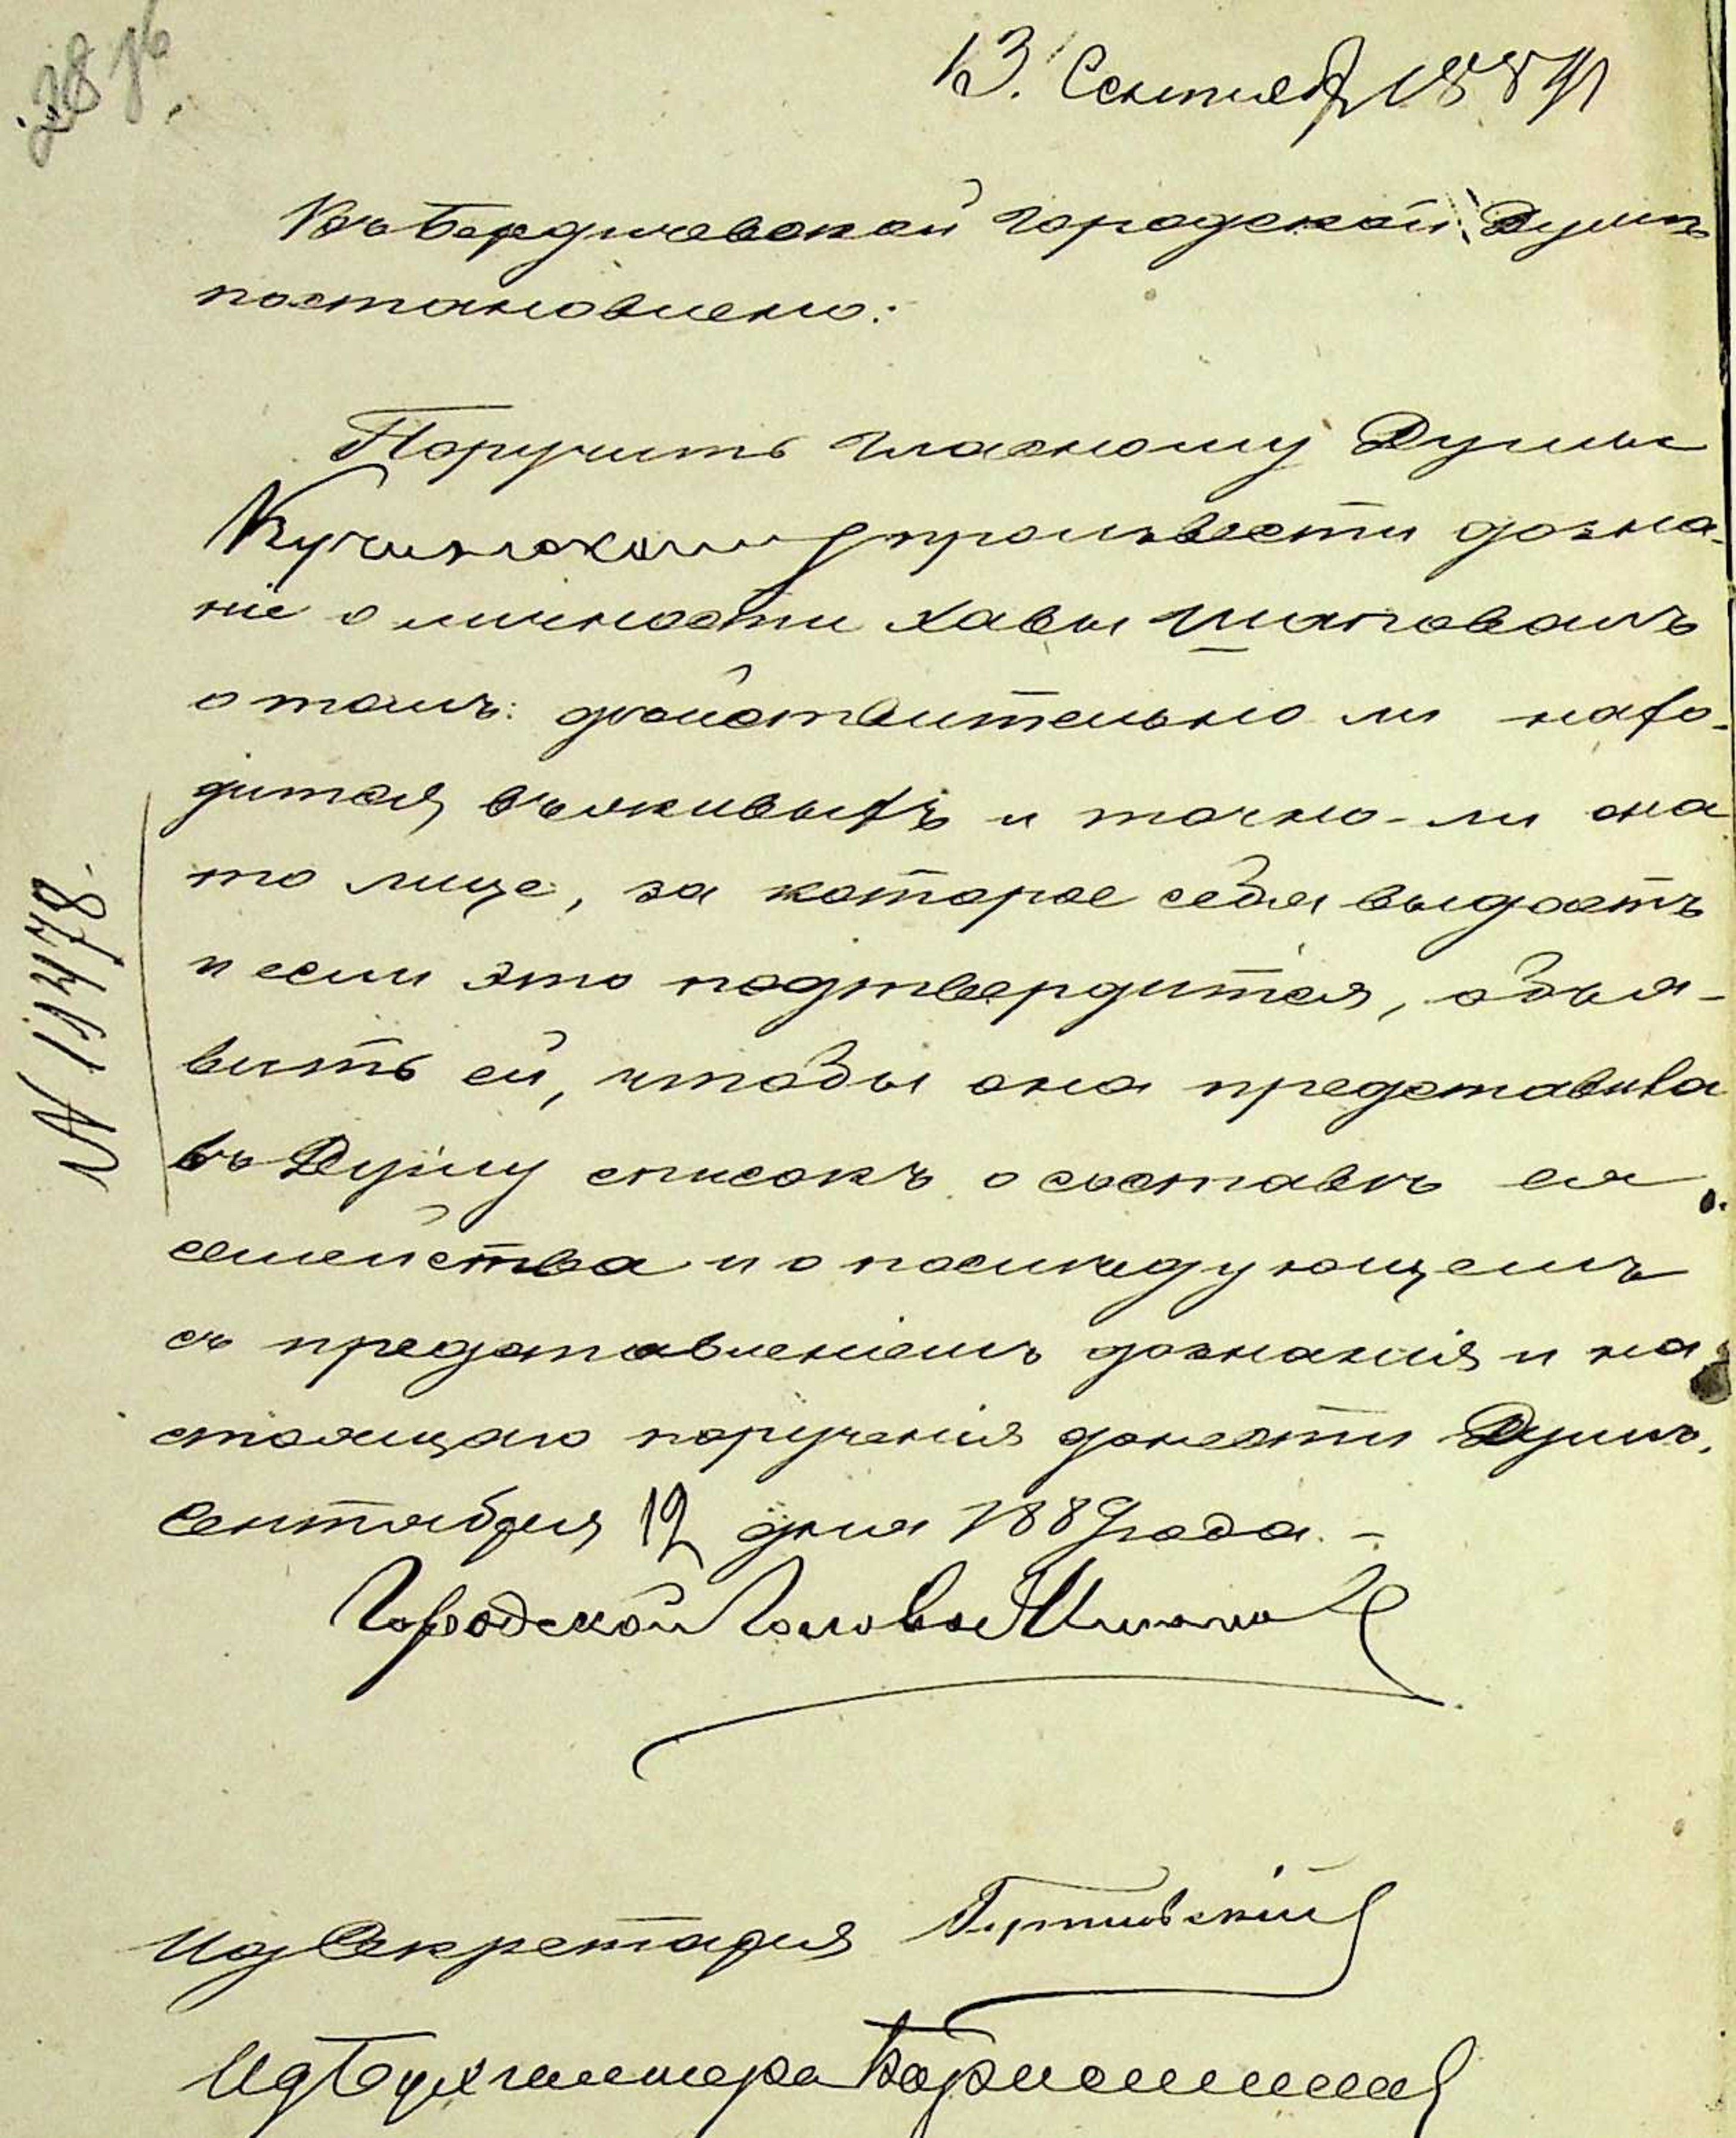 13. Сентября 1889
Въ Бердичевской городской Думѣ
постановлено:
Поручить гласному Думы
произвести дозна-
ніе о личности Хавы
о томъ: дѣйствительно ли нахо-
дится въ живыхъ и точно-ли она
то лице, за которое себя выдаетъ
и если это подтвердится, объя-
вить ей, чтобы она представила
въ Думу списокъ о составѣ ея
семейства и о послѣдующемъ
съ представленіемъ дознанія и на
стоящаго порученія донести Думѣ.
Сентября 12 дня 1889 года. -
Городской Голова
И д Секретаря
И д Бухгалтера
N 11478.